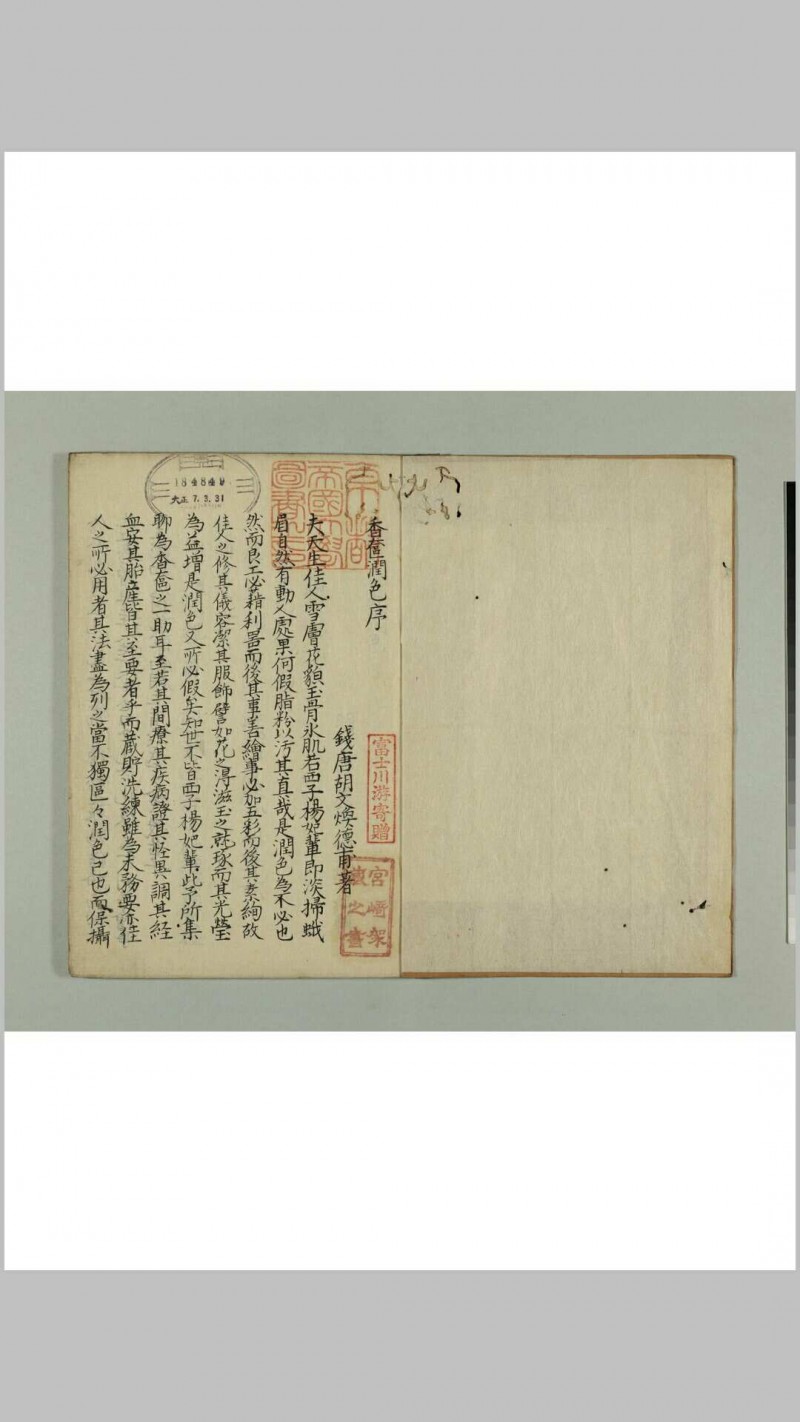 香奩潤色序
錢唐胡文煥德甫著
夫天生佳人雪膚花貌玉骨氷肌若西子楊妃輩即淡掃蛾
眉自然有動人處果何假脂粉以汚其真哉是潤色為不必也
然而良工必藉利器而後其事善繪事必加五彩而後其素絢故
佳人之修其儀容潔其服飾譬如花之得滋玉之就琢而其光瑩
為益增是潤色又所必假矣知世不皆西子楊妃輩此予所集
聊為香奩之一助耳至若其間療其疾病證其怪異調其經
血安其胎產皆其至要者乎而藏貯洗練雖為末務要亦佳
人之所必用者其法盡為列之當不獨區々潤色已也而保攝
富士川游寄贈
宮崎家
藏之書
帝國
圖書
184849
大正 7.3.31